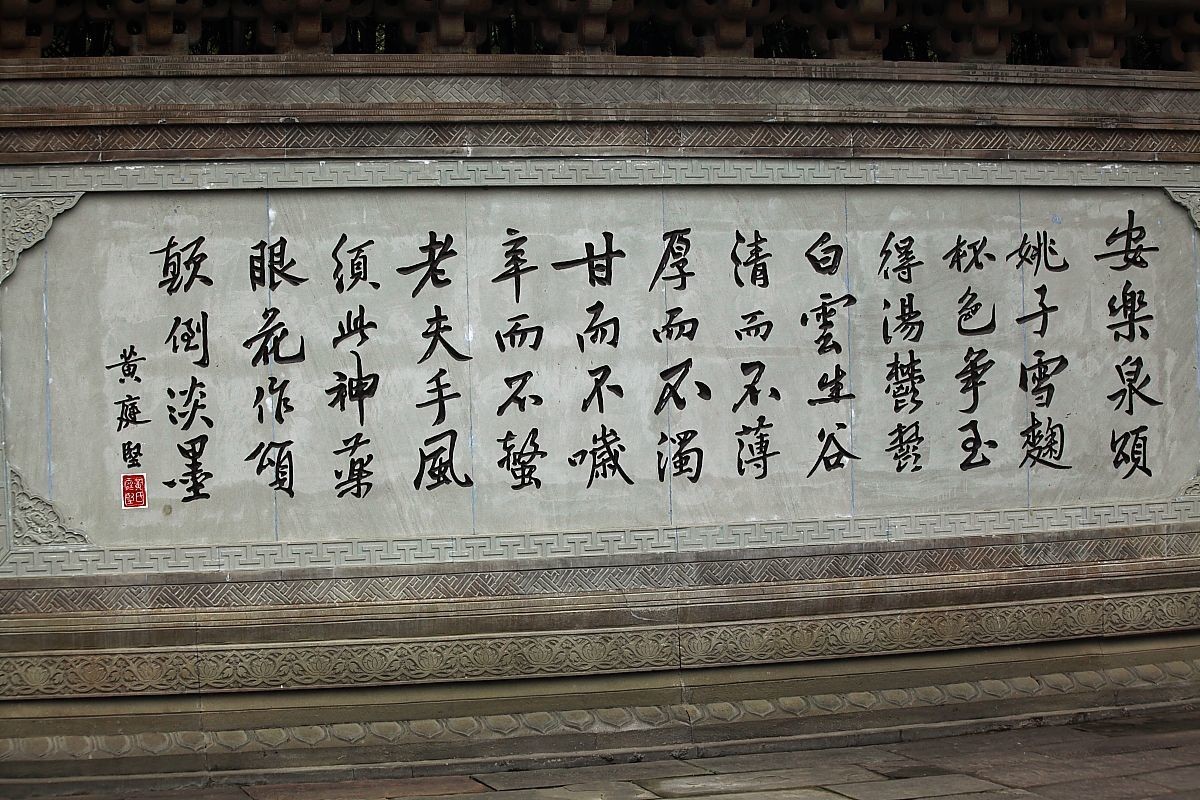 安樂泉頌
姚子雪麴
杯色争玉
得湯鬱鬱
白雲生谷
清而不薄
厚而不濁
甘而不噦
辛而不螫
老夫手風
須此神藥
眼花作頌
顛倒淡墨
黄庭堅